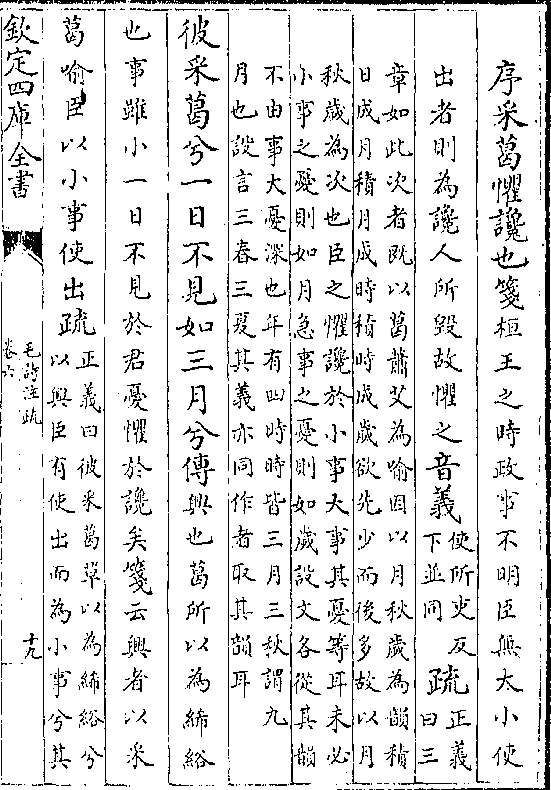 序采葛懼讒也箋桓王之時政事不明臣無大小使
出者則為讒人所毀故懼之音義使所吏反下並同疏正義曰三
章如此次者既以葛蕭艾為喻因以月秋歲為韻積
日成月積月成時積時成歲欲先少而後多故以月
秋歲為次也臣之懼讒於小事大事其憂等耳未必
小事之憂則如月急事之憂則如歲設文各從其韻
不由事大憂深也年有四時時皆三月三秋謂九
月也設言三春三夏其義亦同作者取其韻耳
彼采葛兮一日不見如三月兮傳興也葛所以為絺綌
也事雖小一日不見於君憂懼於讒矣箋云興者以采
葛喻臣以小事使出疏正義曰彼采葛草以為絺綌兮以興臣有使出而為小事兮其
欽定四庫全書
毛詩注疏
卷六
十九